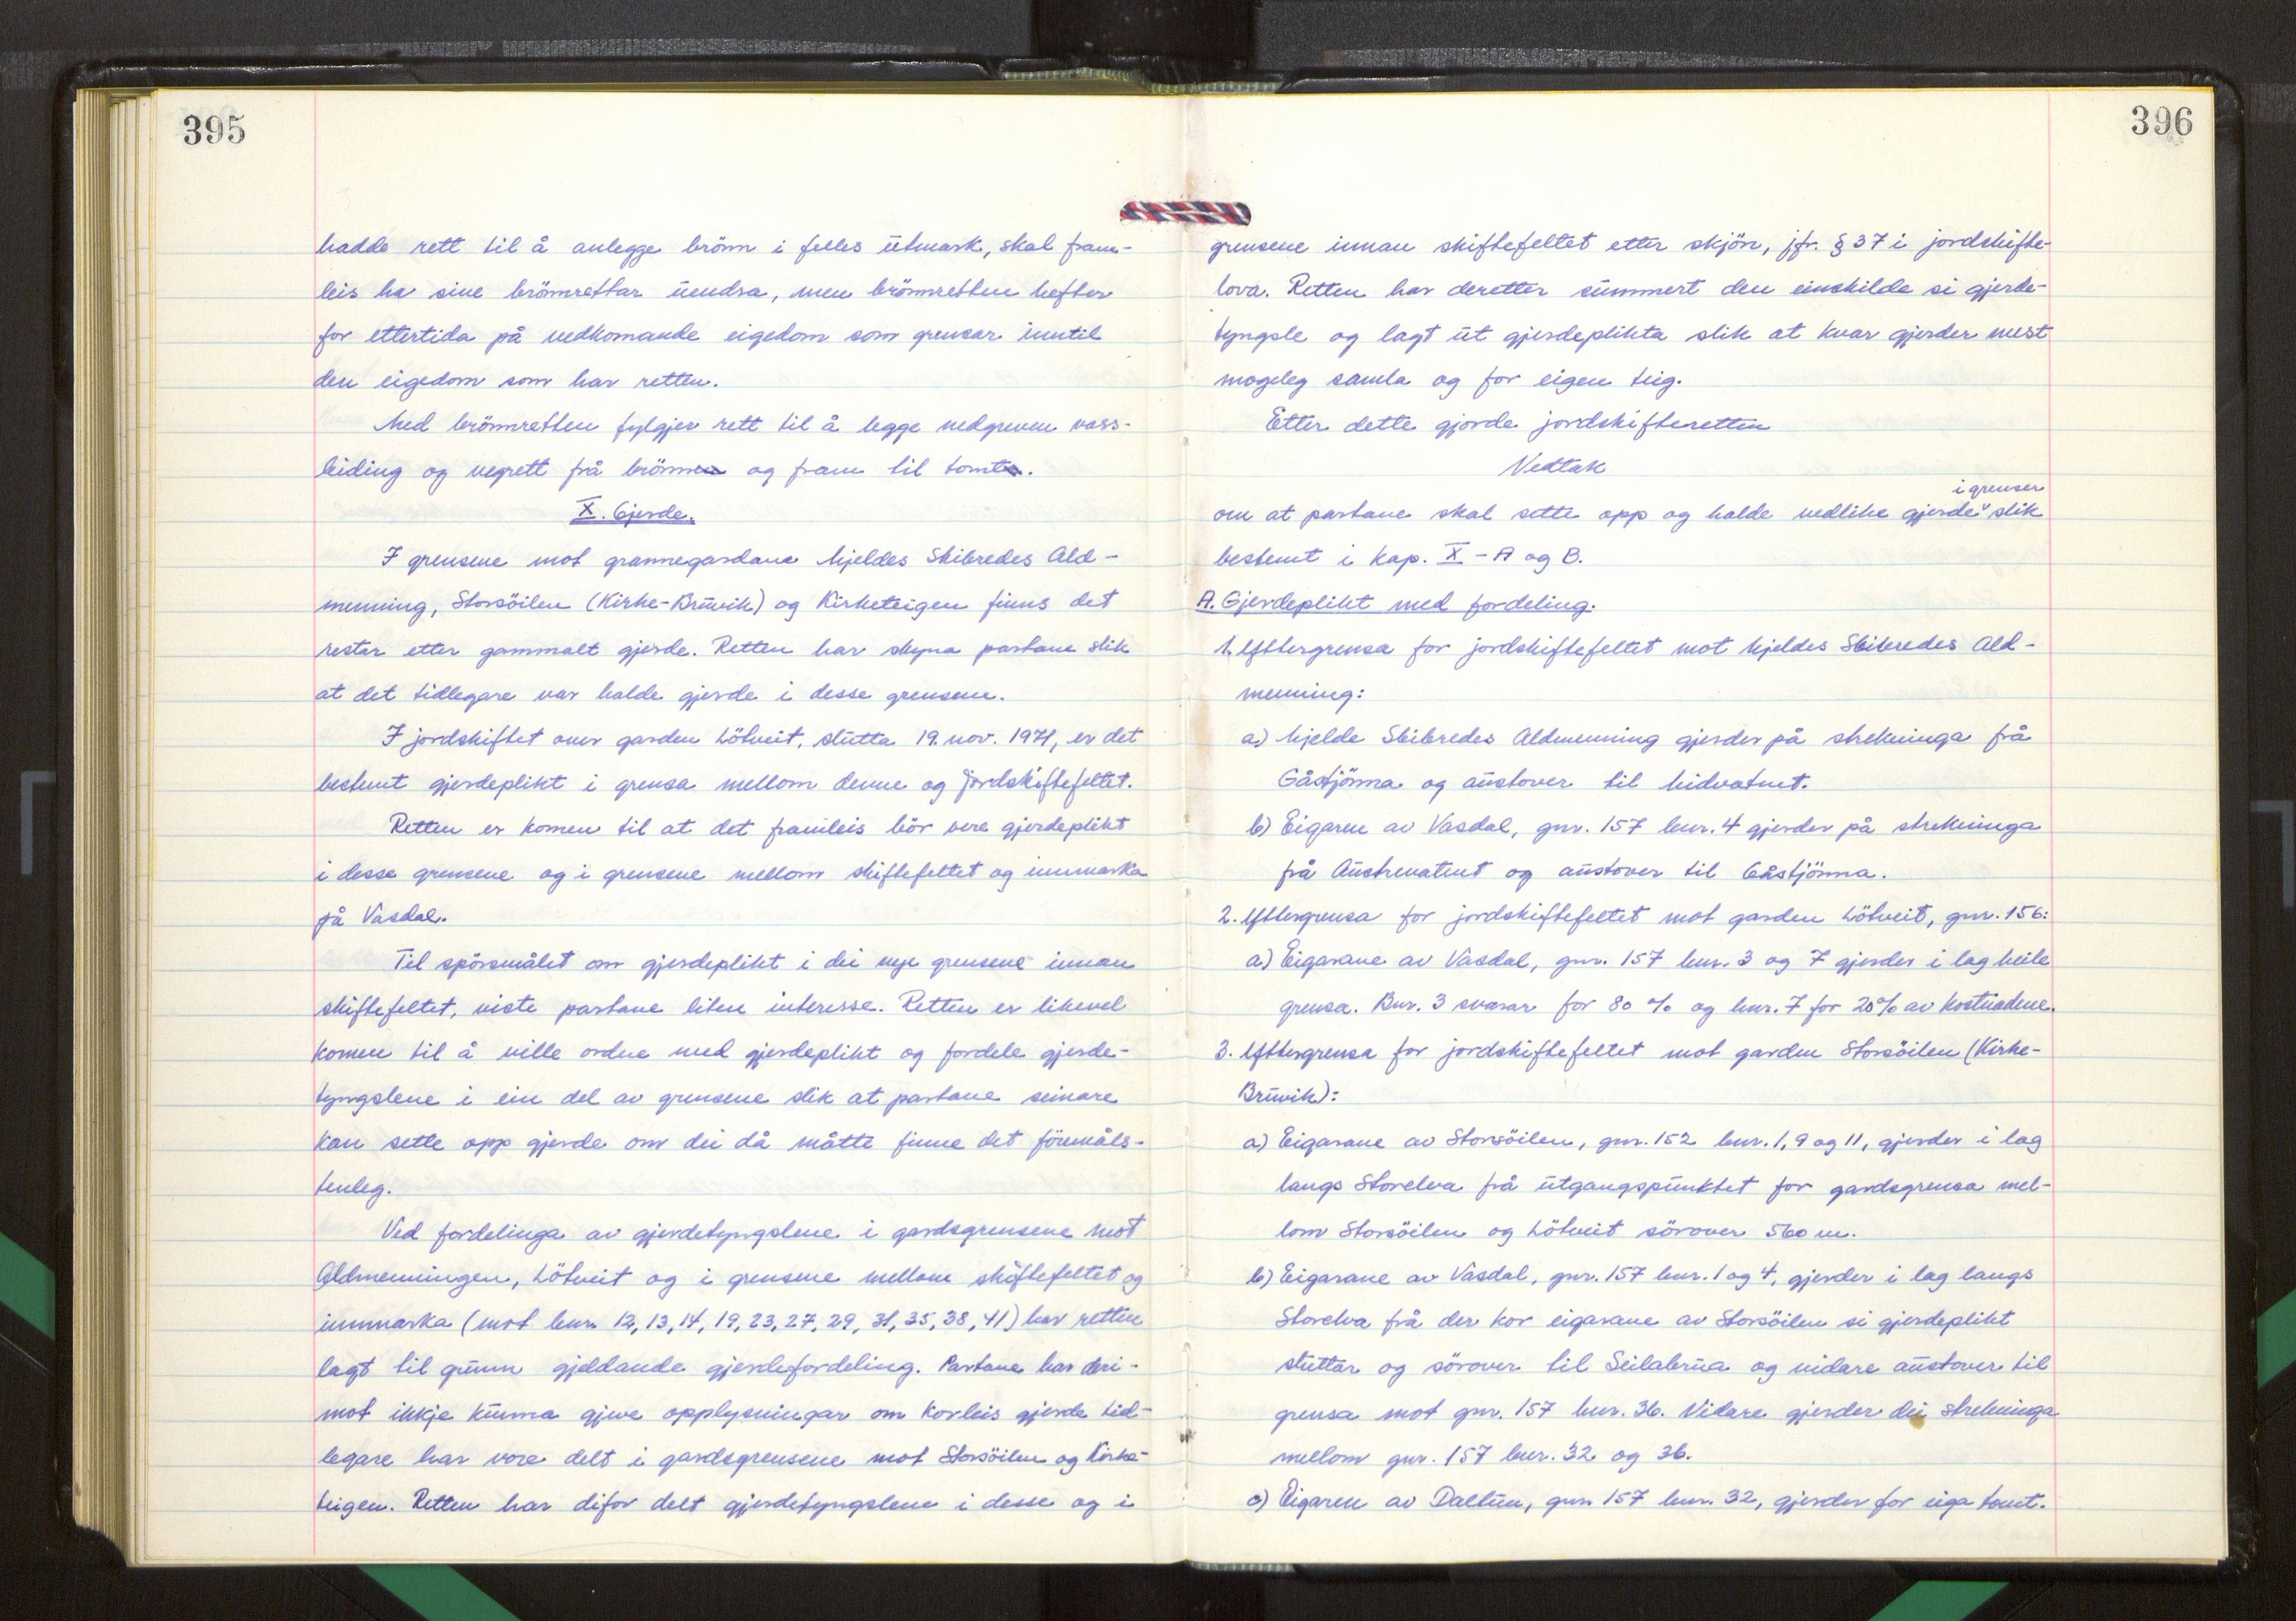 395
hadde rett til å anlegge brönn i felles utmark, skal fram-
leis ha sine brönnrettar uendra, men brönnretten hefter
for ettertida på vedkomande eigedom som grensar inntil
den eigedom som har retten.
Med brönnretten fylgjer rett til å legge nedgreven vass-
leiding og vegrett frå brönnen og fram til tomta.
X. Gjerde.
I grensene mot grannegardane Mjeldes Skibredes Ald-
menning, Storsöilen (Kirke-Bruvik) og Kirketeigen finns det
restar etter gammalt gjerde. Retten har skyna partane slik
at det tidlegare var halde gjerde i desse grensene.
I jordskiftet over garden Lötveit, slutta 19. nov. 1971, er det
bestemt gjerdeplikt i grensa mellom denne og jordskiftefeltet.
Retten er komen til at det framleis bör vere gjerdeplikt
i desse grensene og i grensene mellom skiftefeltet og innmarka
på Vasdal.
Til spörsmålet om gjerdeplikt i dei nye grensene innan
skiftefeltet, viste partane liten interesse. Retten er likevel
komen til å ville ordne med gjerdeplikt og fordele gjerde-
tyngslene i ein del av grensene slik at partane seinare
kan sette opp gjerde om dei då måtte finne det föremåls-
tenleg.
Ved fordelinga av gjerdetyngslene i gardsgrensene mot
Aldmenningen, Lötveit og i grensene mellom skiftefeltet og
innmarka (mot bnr. 12, 13, 14, 19, 23, 27, 29, 31, 35, 38, 41) har retten
lagt til grunn gjeldande gjerdefordeling. Partane har deri-
mot ikkje kunna gjeve opplysningar om korleis gjerde tid-
legare har vore delt i gardsgrensene mot Storsöilen og Kirke-
teigen. Retten har difor delt gjerdetyngslene i desse og i
396
grensene innan skiftefeltet etter skjön, jfr. § 37 i jordskifte-
lova. Retten har deretter summert den einskilde si gjerde-
tyngsle og lagt ut gjerdeplikta slik at kvar gjerder mest
mogeleg samla og for eigen teig.
Etter dette gjorde jordskifteretten
Vedtak
i grenser
om at partane skal sette opp og halde vedlike gjerde v slik
bestemt i kap. X - A og B.
A. Gjerdeplikt med fordeling.
1. Yttergrensa for jordskiftefeltet mot Mjeldes Skibredes Ald-
menning:
a) Mjelde Skibredes Aldmenning gjerder på strekninga frå
Gåstjönna og austover til Midvatnet.
b) Eigaren av Vasdal, gnr. 157 bnr. 4 gjerder på strekninga
frå Austrevatnet og austover til Gåstjönna.
2. Yttergrensa for jordskiftefeltet mot garden Lötveit, gnr. 156:
a) Eigarane av Vasdal, gnr. 157 bnr. 3 og 7 gjerder i lag heile
grensa. Bnr. 3 svarar for 80 % og bnr. 7 for 20% av kostnadene.
3. Yttergrensa for jordskiftefeltet mot garden Storsöilen (Kirke-
Bruvik):
a) Eigarane av Storsöilen, gnr. 152 bnr. 1, 9 og 11, gjerder i lag
langs Storelva frå utgangspunktet for gardsgrensa mel-
lom Storsöilen og Lötveit sörover 560 m.
b) Eigarane av Vasdal, gnr. 157 bnr. 1 og 4, gjerder i lag langs
Storelva frå der kor eigarane av Storsöilen si gjerdeplikt
sluttar og sörover til Seilabrua og vidare austover til
grensa mot gnr. 157 bnr. 36. Vidare gjerder dei strekninga
mellom gnr. 157 bnr. 32 og 36.
c) Eigaren av Daltun, gnr. 157 bnr. 32, gjerder for eiga tomt.